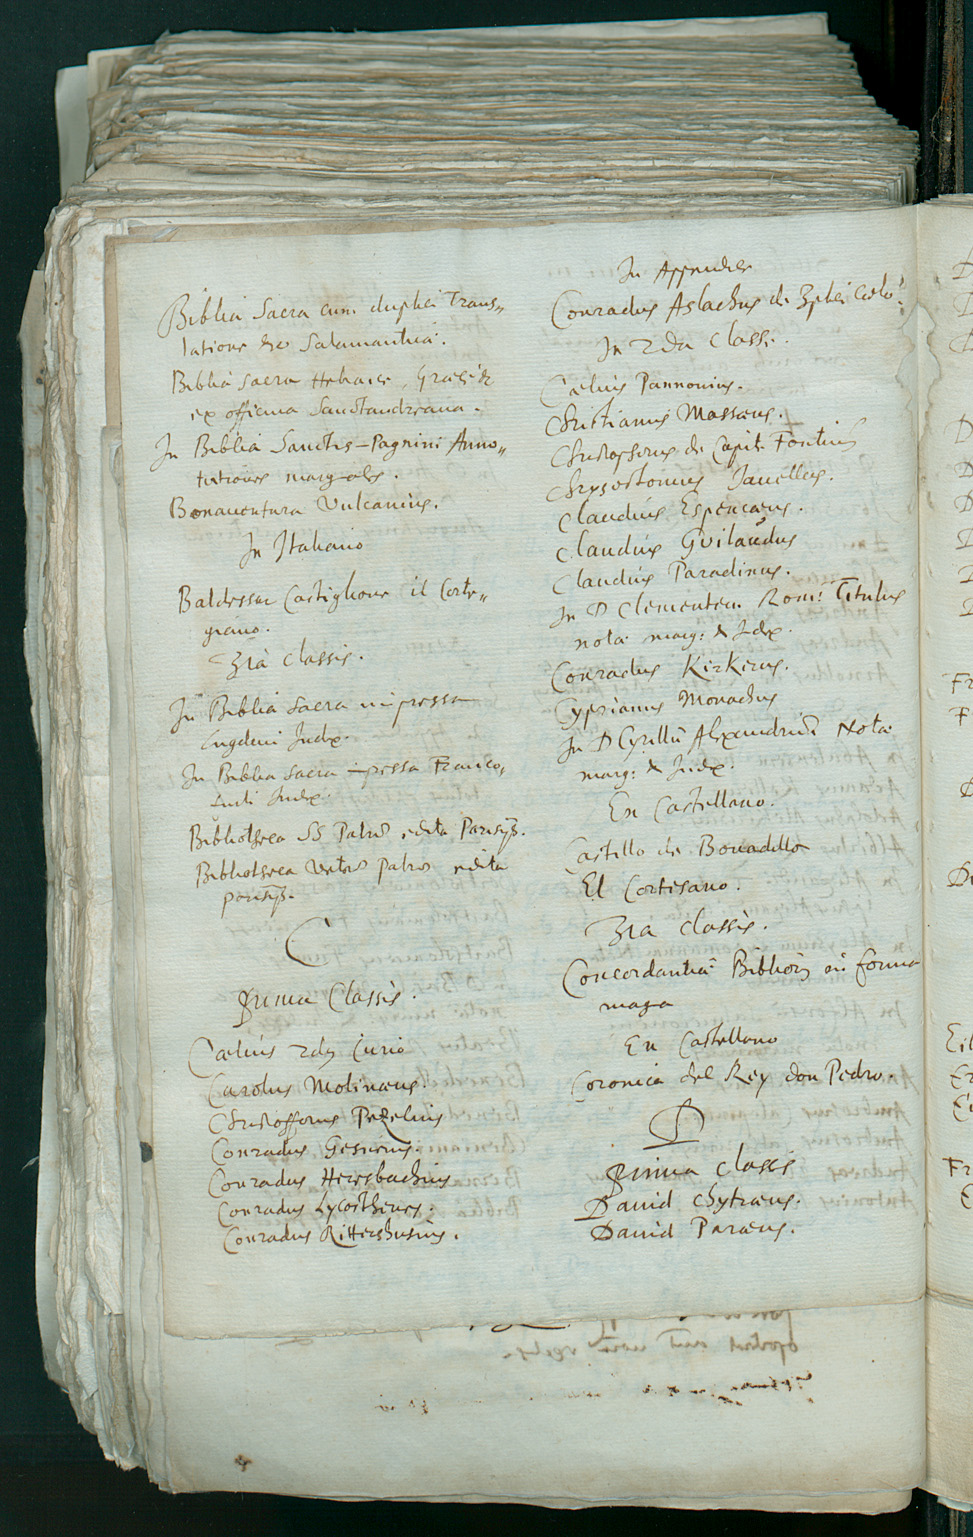 Biblia Sacra cum duplici Trans„
latione &c Salamantica.
Biblia sacra Hebraice, Graece &
ex officina Sanctandreana.
In Biblia Sanctis-Pagnini Anno„
tationes marginales.
Bonauentura Vulcanius.
In Italiano
Baldessar Castiglione il Corte„
giano.
3ra classis.
In Biblia Sacra impressa
Lugduni Index.
In Biblia Sacra impressa Franco,
furti Index.
Bibliotheca SS Patrũ edita Parisijs.
Bibliotheca Veterũ Patrũ edita
parisijs.
C
Prima Classis.
Cælius 2dus Curio
Carolus Molinæus.
Christofforus Pezelius
Conradus Gesnerus.
Conradus Heresbachius
Conradus Lycosthenes.
Conradus Rittershusius.
In Appendice
Conradus Aslachus de
In 2da Classe.
Cælius Pannonius.
Christianus Massæus.
Christophorus de Capit. Fontiũ
Chrysostomus Iauellus.
Claudius Espencæus.
Claudius Guilaudus
Claudius Paradinus.
In D Clementem Rom: Titulus
nota marg: & Index.
Conradus Kirkerus.
Cyprianus Monachus
In D Cyrillũ Alexandrinũ Nota
marg: & Index.
En Castellano.
Castillo de Bouadilla
El Cortesano.
3ra classis.
Concordantiæ Bibliorũ in forma
magna
En Castellano
Coronica del Rey don Pedro.
D
Prima classis
Dauid Chytræus.
Dauid Paræus.